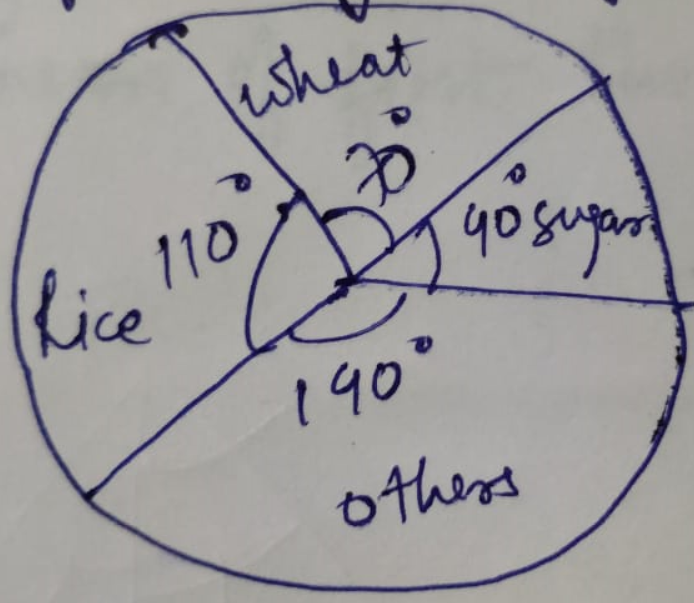 wheat
70°
40° sugar
110°
Rice
140°
others